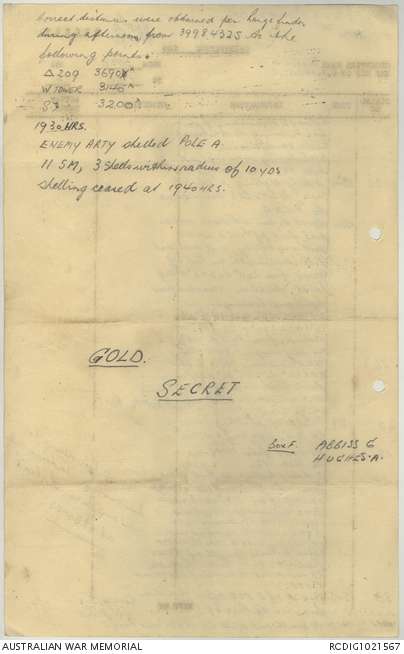 Correct distances were obtained per range finder
during afternoon from 39984325 to the
following points.
Δ 209 3690
W TOWER 3140
3200
1930 HRS.
ENEMY ARTY shelled POLE A.
11 SM, 3 shells within radius of 10 YDS
Shelling ceased at 1940 HRS.
GOLD.
SECRET
Box F. ABBISS G
HUGHES. A.
AUSTRALIAN WAR MEMORIAL
RCDIG1021567